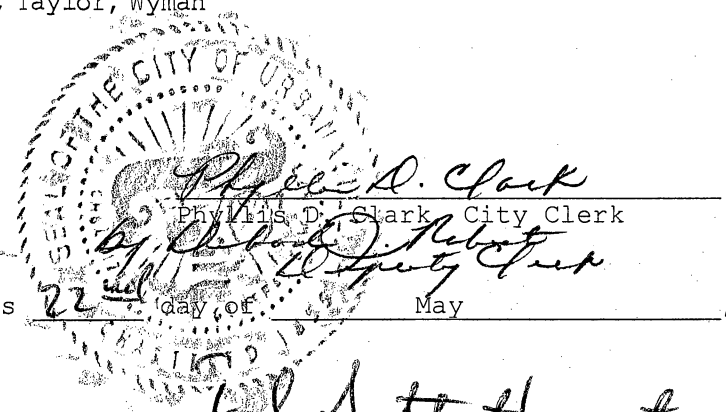 Taylor, Wyman
SEAL OF THE CITY OF URBANA
Phyllis D. Clark
Phyllis D. Clark, City Clerk
by Deborah J. Roberts
Deputy Clerk
s 22nd day of May